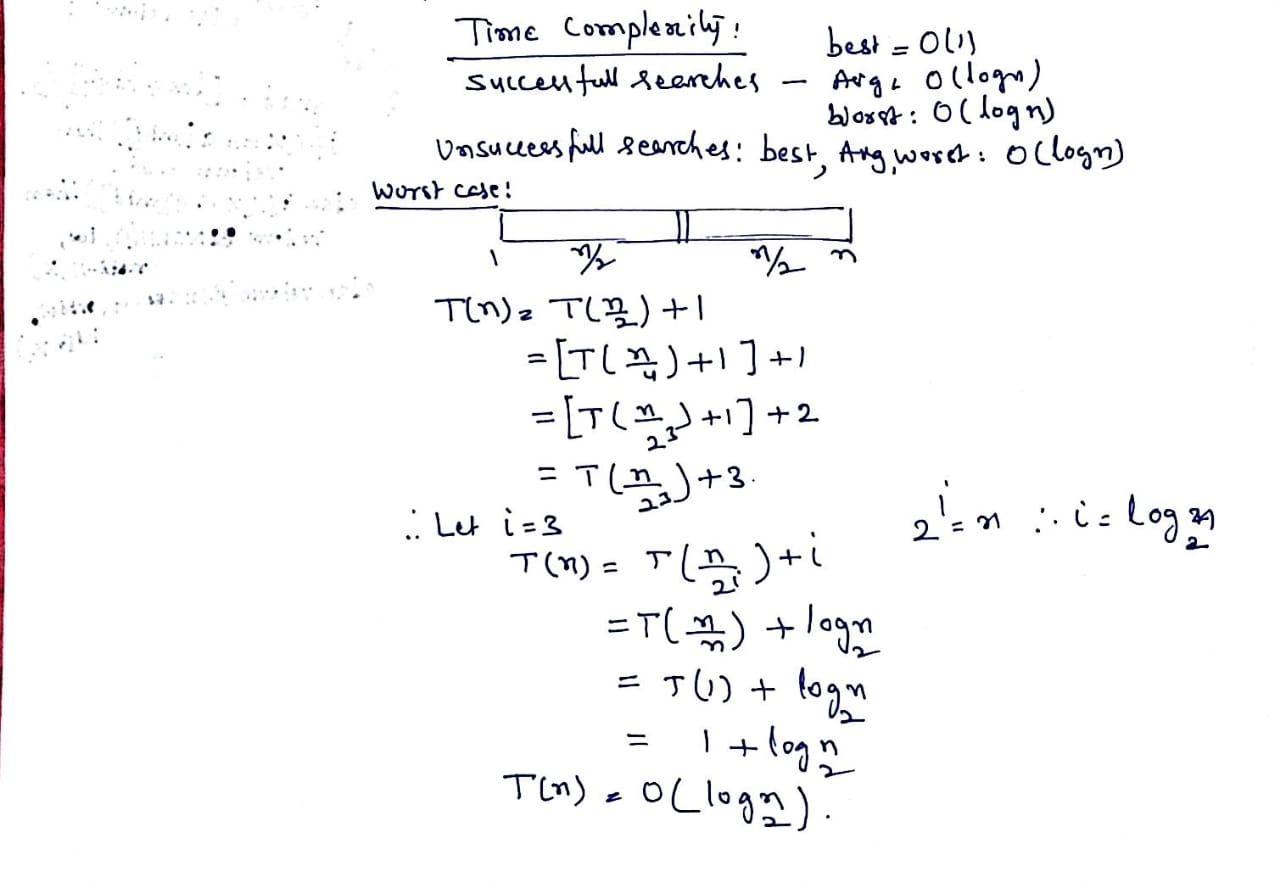 Time Complexity:
best = O(1)
Successfull searches – Avg: O(logn)
Worst: O(logn)
Unsuccessfull searches: best, Avg, worst: O(logn)
Worst case:
1 n/2 n/2 n
T(n) = T(n/2) + 1
= [T(n/4) + 1] + 1
= [T(n/2³) + 1] + 2
= T(n/2³) + 3.
∴ Let i = 3
2ⁱ = n ∴ i = log₂n
T(n) = T(n/2ⁱ) + i
= T(n/n) + log₂n
= T(1) + log₂n
= 1 + log₂n
T(n) = O(log₂n).